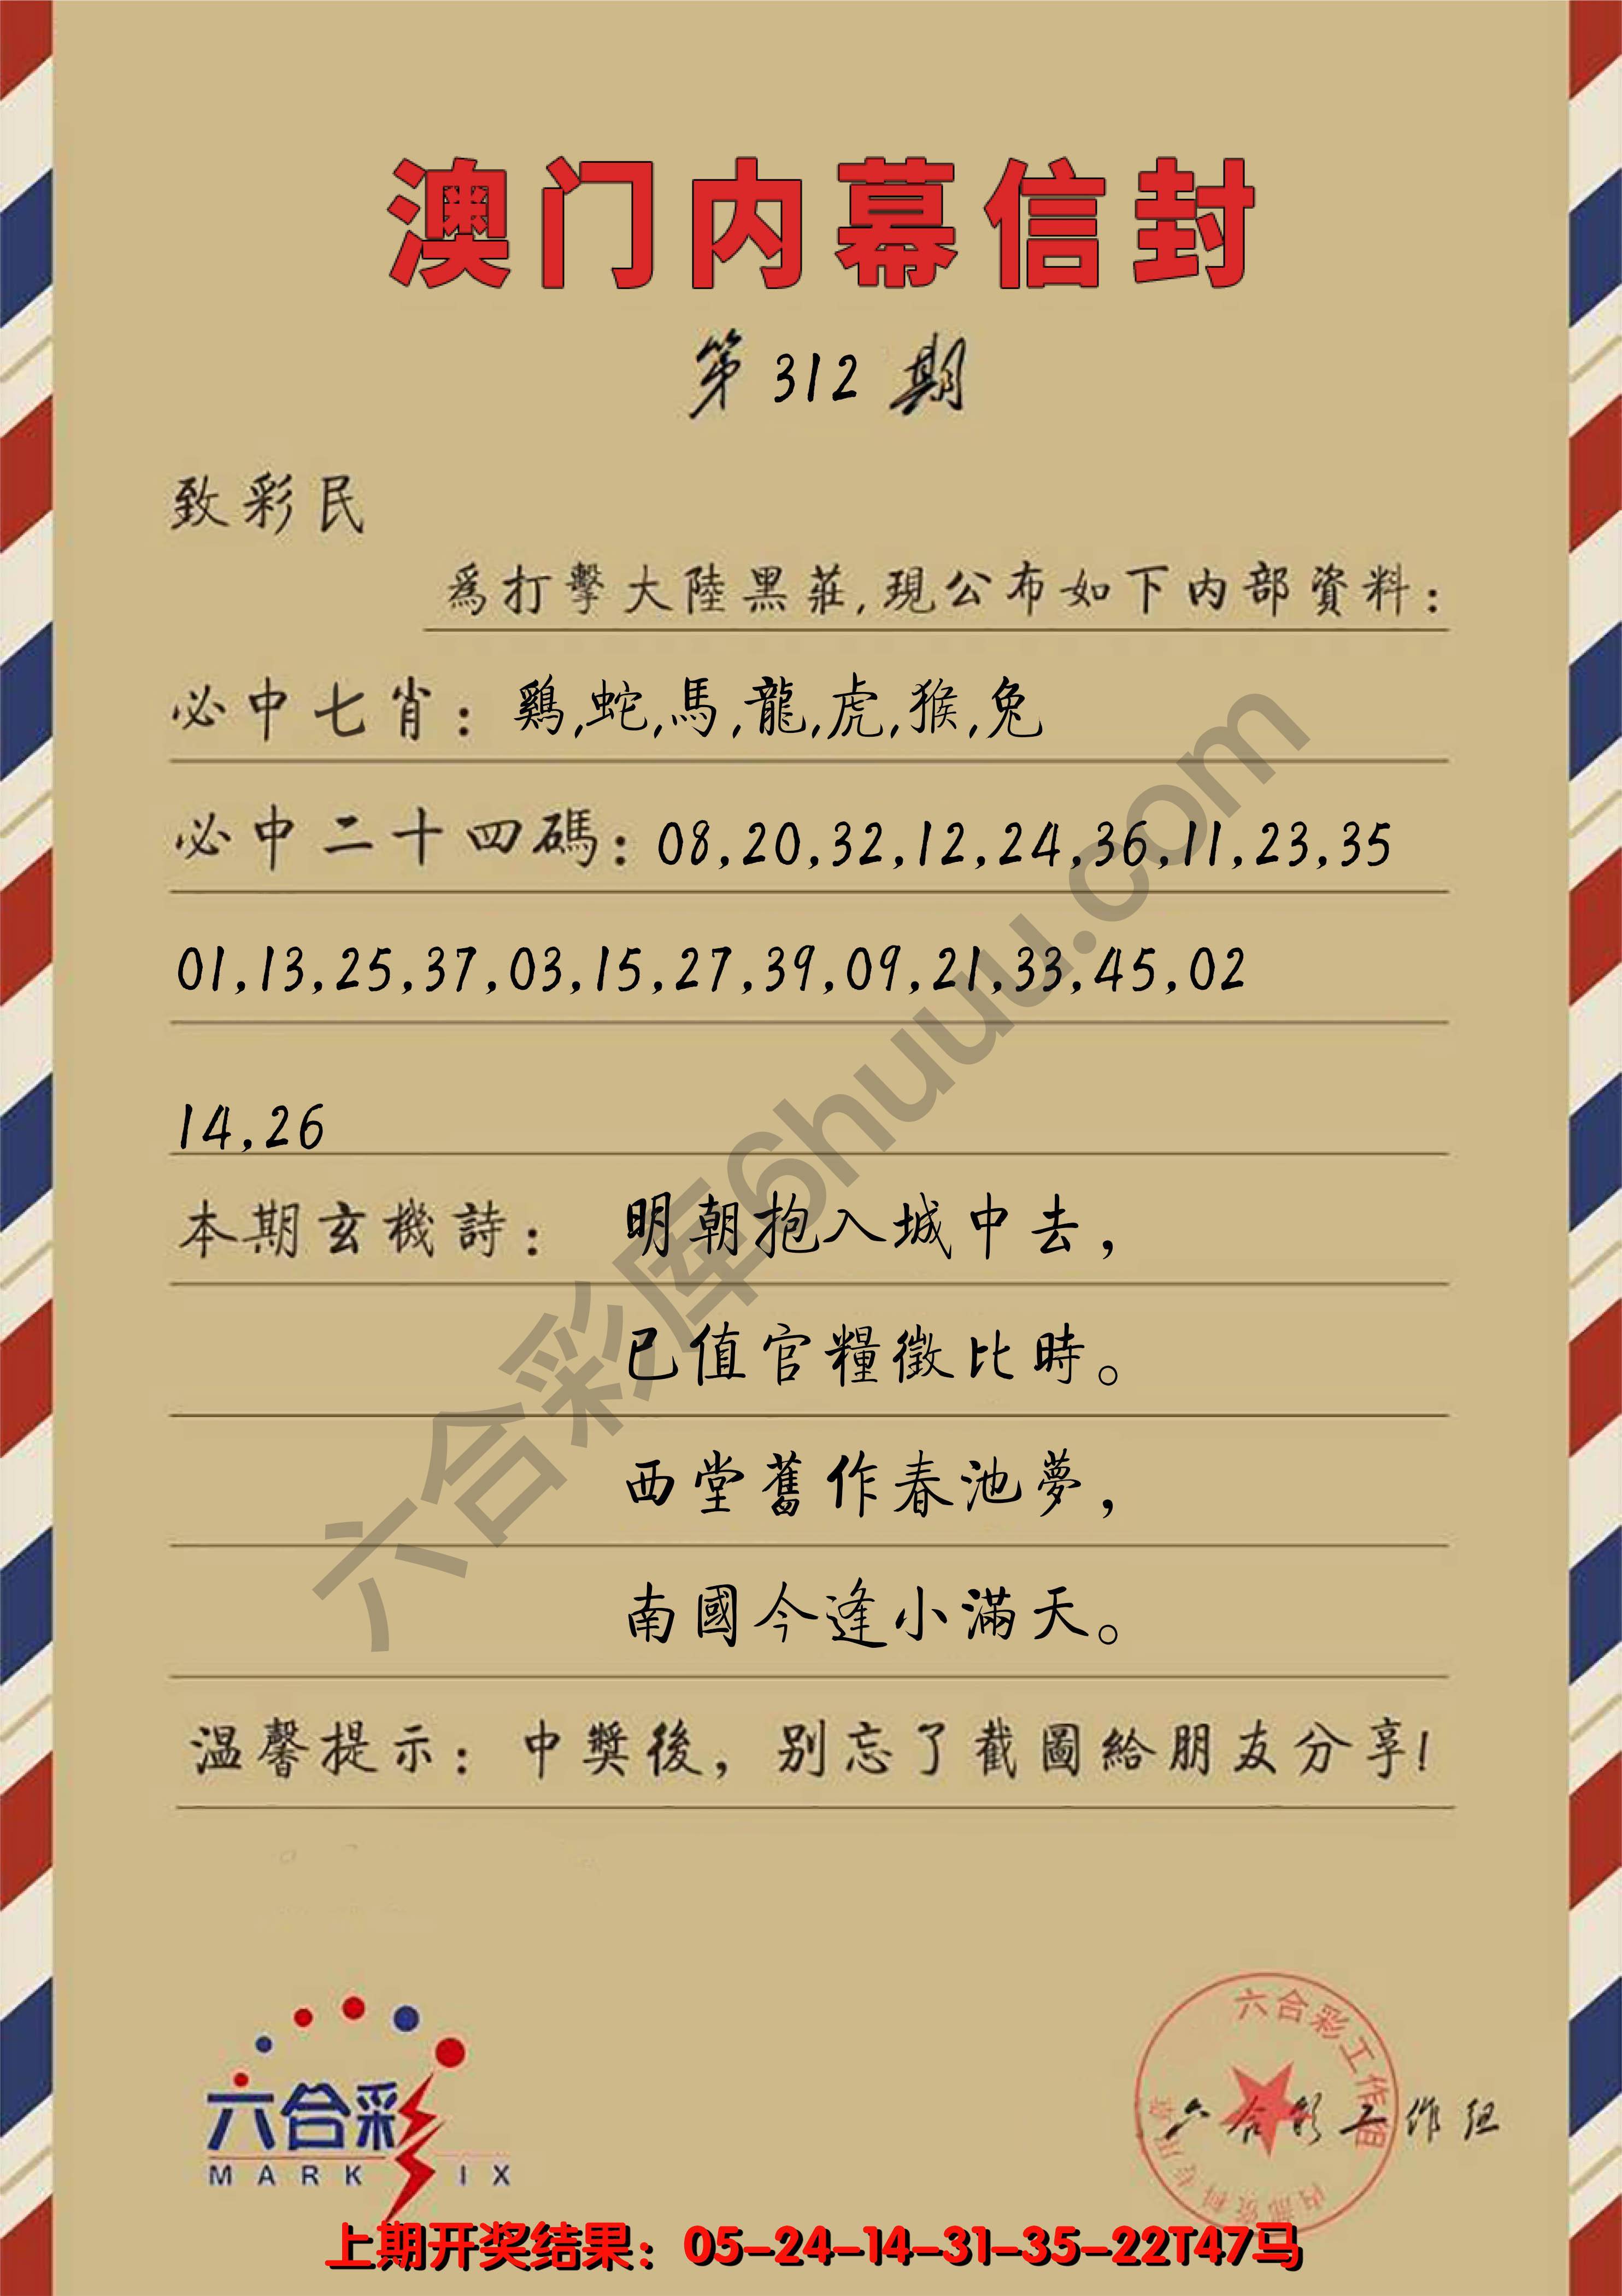 澳门内幕信封
第312期
致彩民
爲打擊大陸黑莊,現公布如下内部資料:
必中七肖:鷄,蛇,馬,龍,虎,猴,兔
必中二十四碼:08,20,32,12,24,36,11,23,35
01,13,25,37,03,15,27,39,09,21,33,45,02
14,26
本期玄機詩:明朝抱入城中去,
已值官糧徵比時。
西堂舊作春池夢,
南國今逢小滿天。
温馨提示:中獎後,别忘了截圖給朋友分享!
六合彩库6huuu.com
六合彩
MARK IX
六合彩工作组
内部资料专用章
六合彩工作组
上期开奖结果:05-24-14-31-35-22T47马